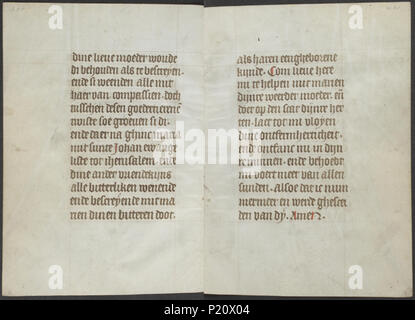 dine lieue moeder woude
di behouden als te bescreyen.
ende si weenden alle mit
haer van compassien. doch
tusschen desen goedertieren
wijste soe groeten si di
ende daer na ghinc maria
mit sunte Johan ewange
liste tot iherusalem. ende
dine ander vriendekijns
alle bitterliken wenende
ende bescreyende mit ma
nen dinen bitteren doot.
als haren eengheborene
kinde. Com lieue here
mi te helpen mit manen
dijnre weerder moeder. en
doet op den scat dijnre her
ten. laet tot mi vloyen
dine ontfermherticheit.
ende ontfanc mi in dijn
re minnen. ende behoedt
mi voert meer van allen
sunden. alsoe dat ic nim
mermeer en werde ghesce
den van dy. Amen.
alamy
P210X04